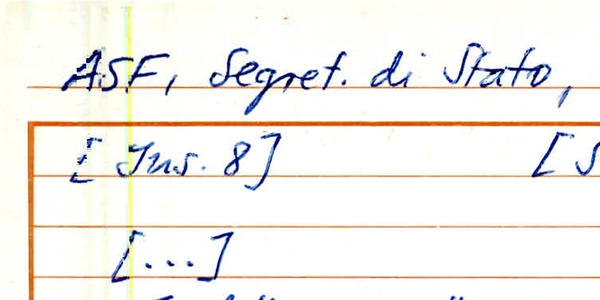 ASF, Segret. di Stato,
[Ins. 8] [S
[...]